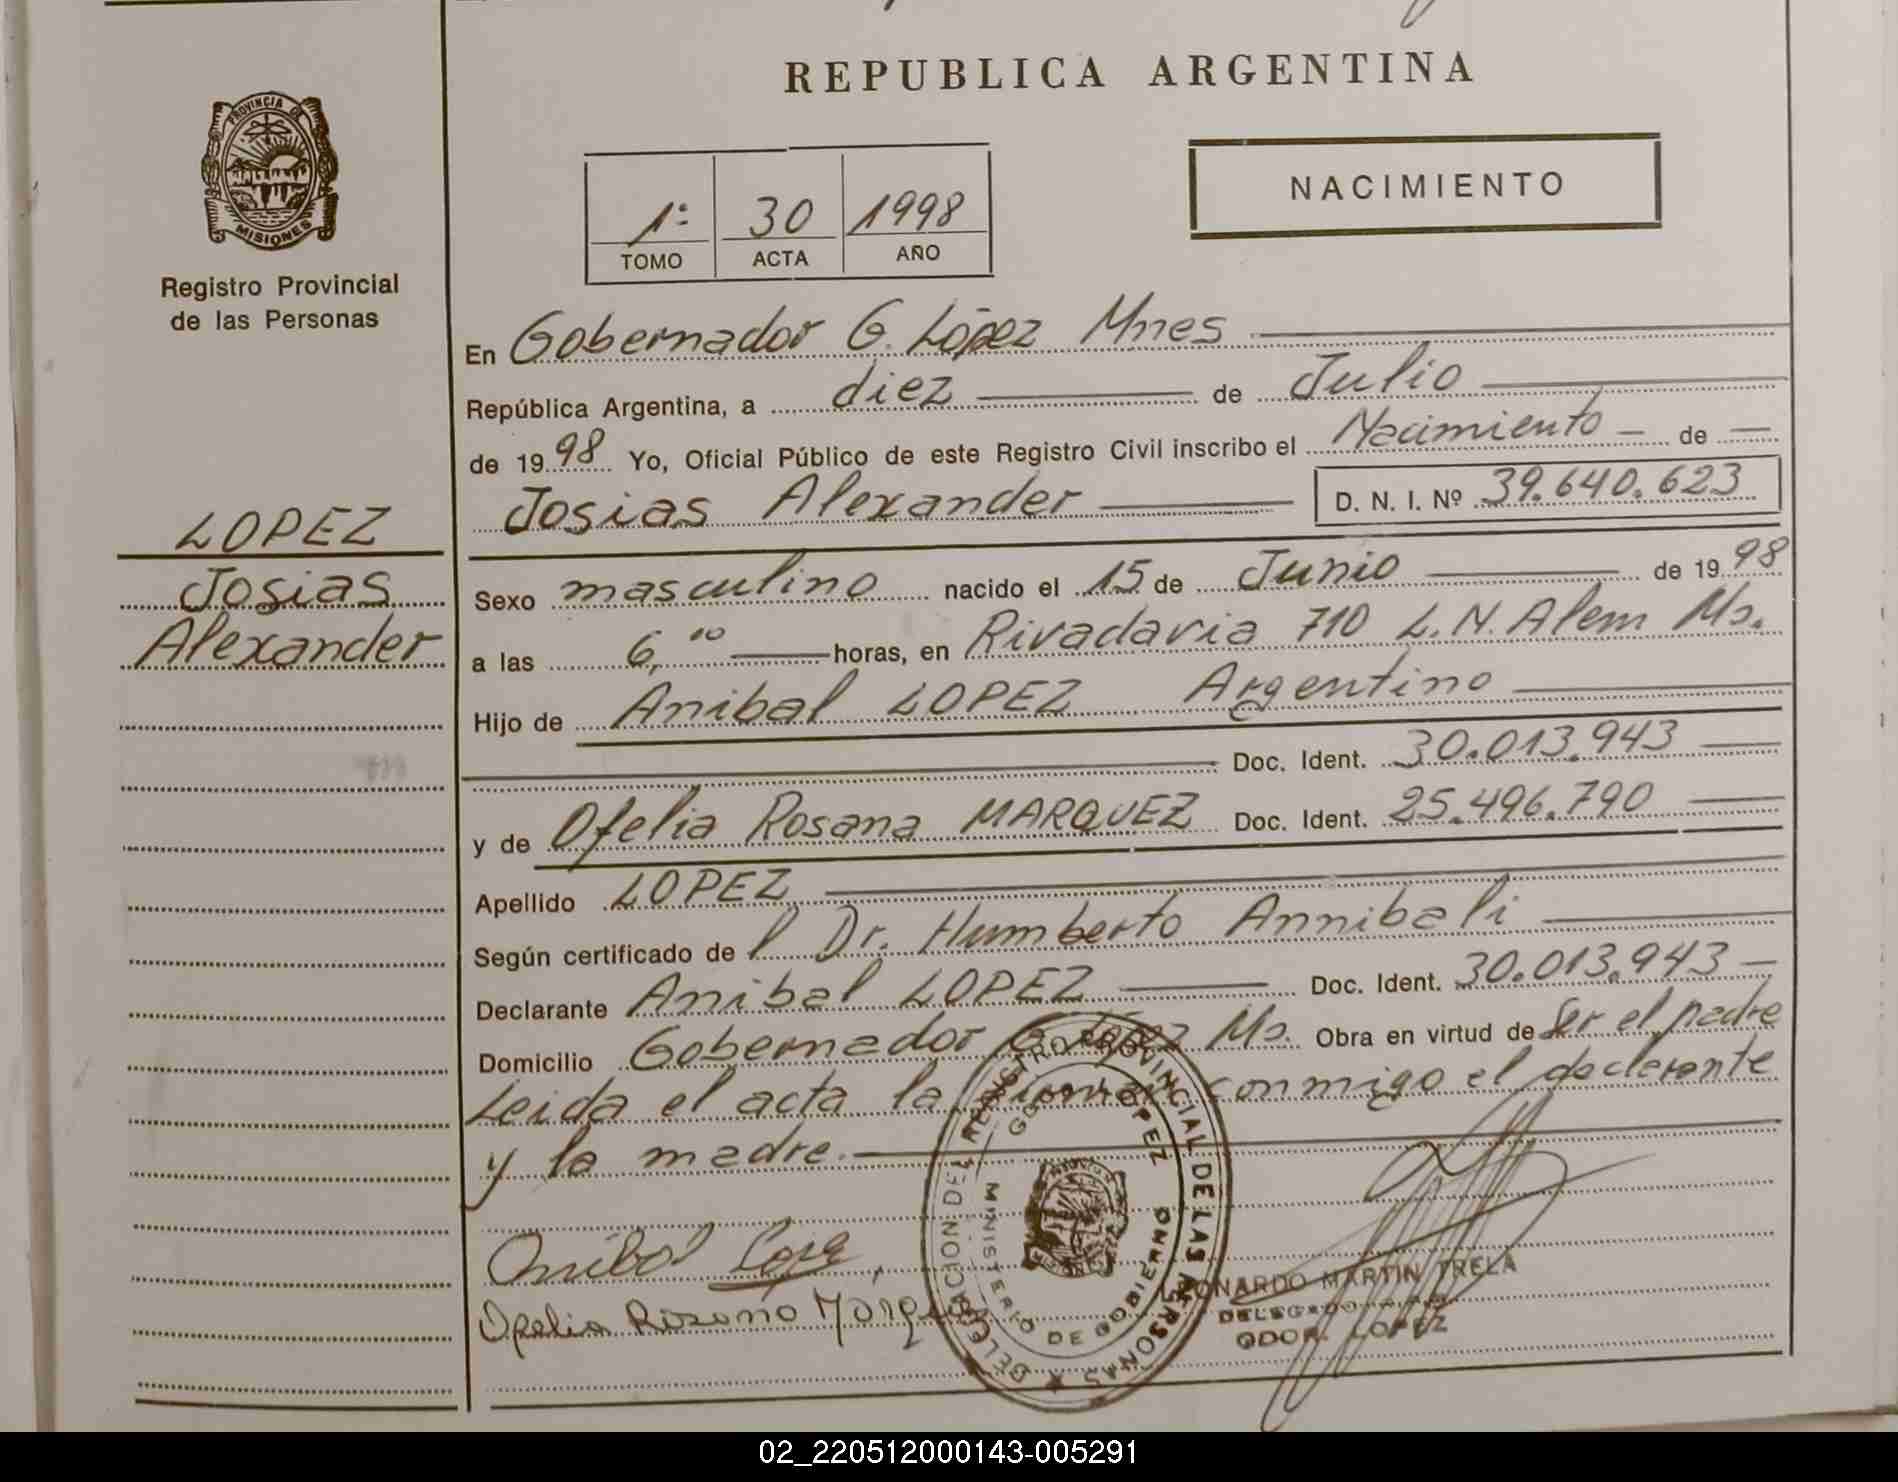 REPUBLICA ARGENTINA
PROVINCIA DE
MISIONES
Registro Provincial
de las Personas
NACIMIENTO
1º 30 1998
TOMO ACTA AÑO
LOPEZ
Josias
Alexander
En Gobernador G. López Mnes
República Argentina, a diez de Julio
de 1998 Yo, Oficial Público de este Registro Civil inscribo el Nacimiento de
Josias Alexander D. N. I. Nº 39.640.623
Sexo masculino nacido el 15 de Junio de 1998
a las 6,10 horas, en Rivadavia 710 L.N. Alem Ms.
Hijo de Anibal LOPEZ Argentino
Doc. Ident. 30.013.943
y de Ofelia Rosana MARQUEZ Doc. Ident. 25.496.790
Apellido LOPEZ
Según certificado de l Dr. Humberto Annibali
Declarante Anibal LOPEZ Doc. Ident. 30.013.943
Domicilio Gobernador G. López Ms. Obra en virtud de Ser el padre
Leida el acta la firman conmigo el declarante
y la madre.
Anibal Lopez
Ofelia Rosana Marquez
DELEGACION DEL REGISTRO PROVINCIAL DE LAS PERSONAS
LOPEZ
MINISTERIO DE GOBIERNO
LEONARDO MARTIN TRELA
DELEGADO
GDOR. LOPEZ
02_220512000143-005291